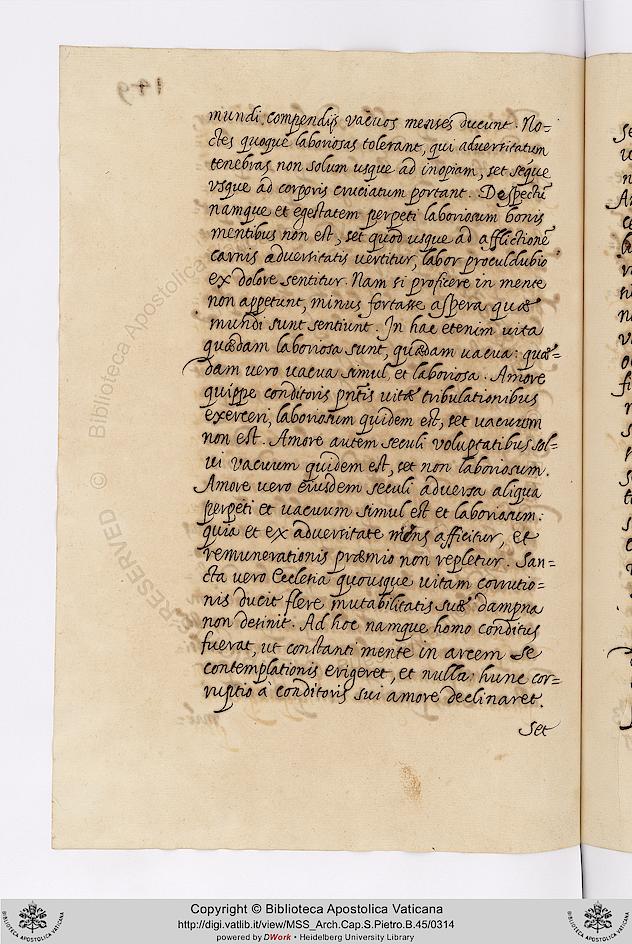 mundi compendijs vacuos menses ducunt. No=
ctes quoque laboriosas tolerant, qui adversitatum
tenebras non solum usque ad inopiam, set sepe
vsque ad corporis cruciatum portant. Despectū
namque et egestatem perpeti laboriosum bonis
mentibus non est, set quod usque ad afflictionē
carnis adversitatis vertitur, labor proculdubio
ex dolore sentitur. Nam si proficere in mente
non appetunt, minus fortasse aspera quæ
mundi sunt sentiunt. In hac etenim vita
quædam laboriosa sunt, quædam vacua: quæ=
dam vero vacua simul, et laboriosa. Amore
quippe conditoris pñtis vitæ tribulationibus
exerceri, laboriosum quidem est, set vacuum
non est. Amore autem seculi voluptatibus sol=
vi vacuum quidem est, set non laboriosum.
Amore vero eiusdem seculi adversa aliqua
perpeti et vacuum simul est et laboriosum:
quia et ex adversitate mens afficitur, et
remunerationis præmio non repletur. San=
cta vero Ecclesia quousque vitam corrutio=
nis ducit flere mutabilitatis suæ dampna
non desinit. Ad hoc namque homo conditus
fuerat, ut constanti mente in arcem se
contemplationis erigeret, et nulla hunc cor=
ruptio à conditoris sui amore declinaret.
Set
© Biblioteca Apostolica
RESERVED
Copyright © Biblioteca Apostolica Vaticana
http://digi.vatlib.it/view/MSS_Arch.Cap.S.Pietro.B.45/0314
powered by DWork • Heidelberg University Library